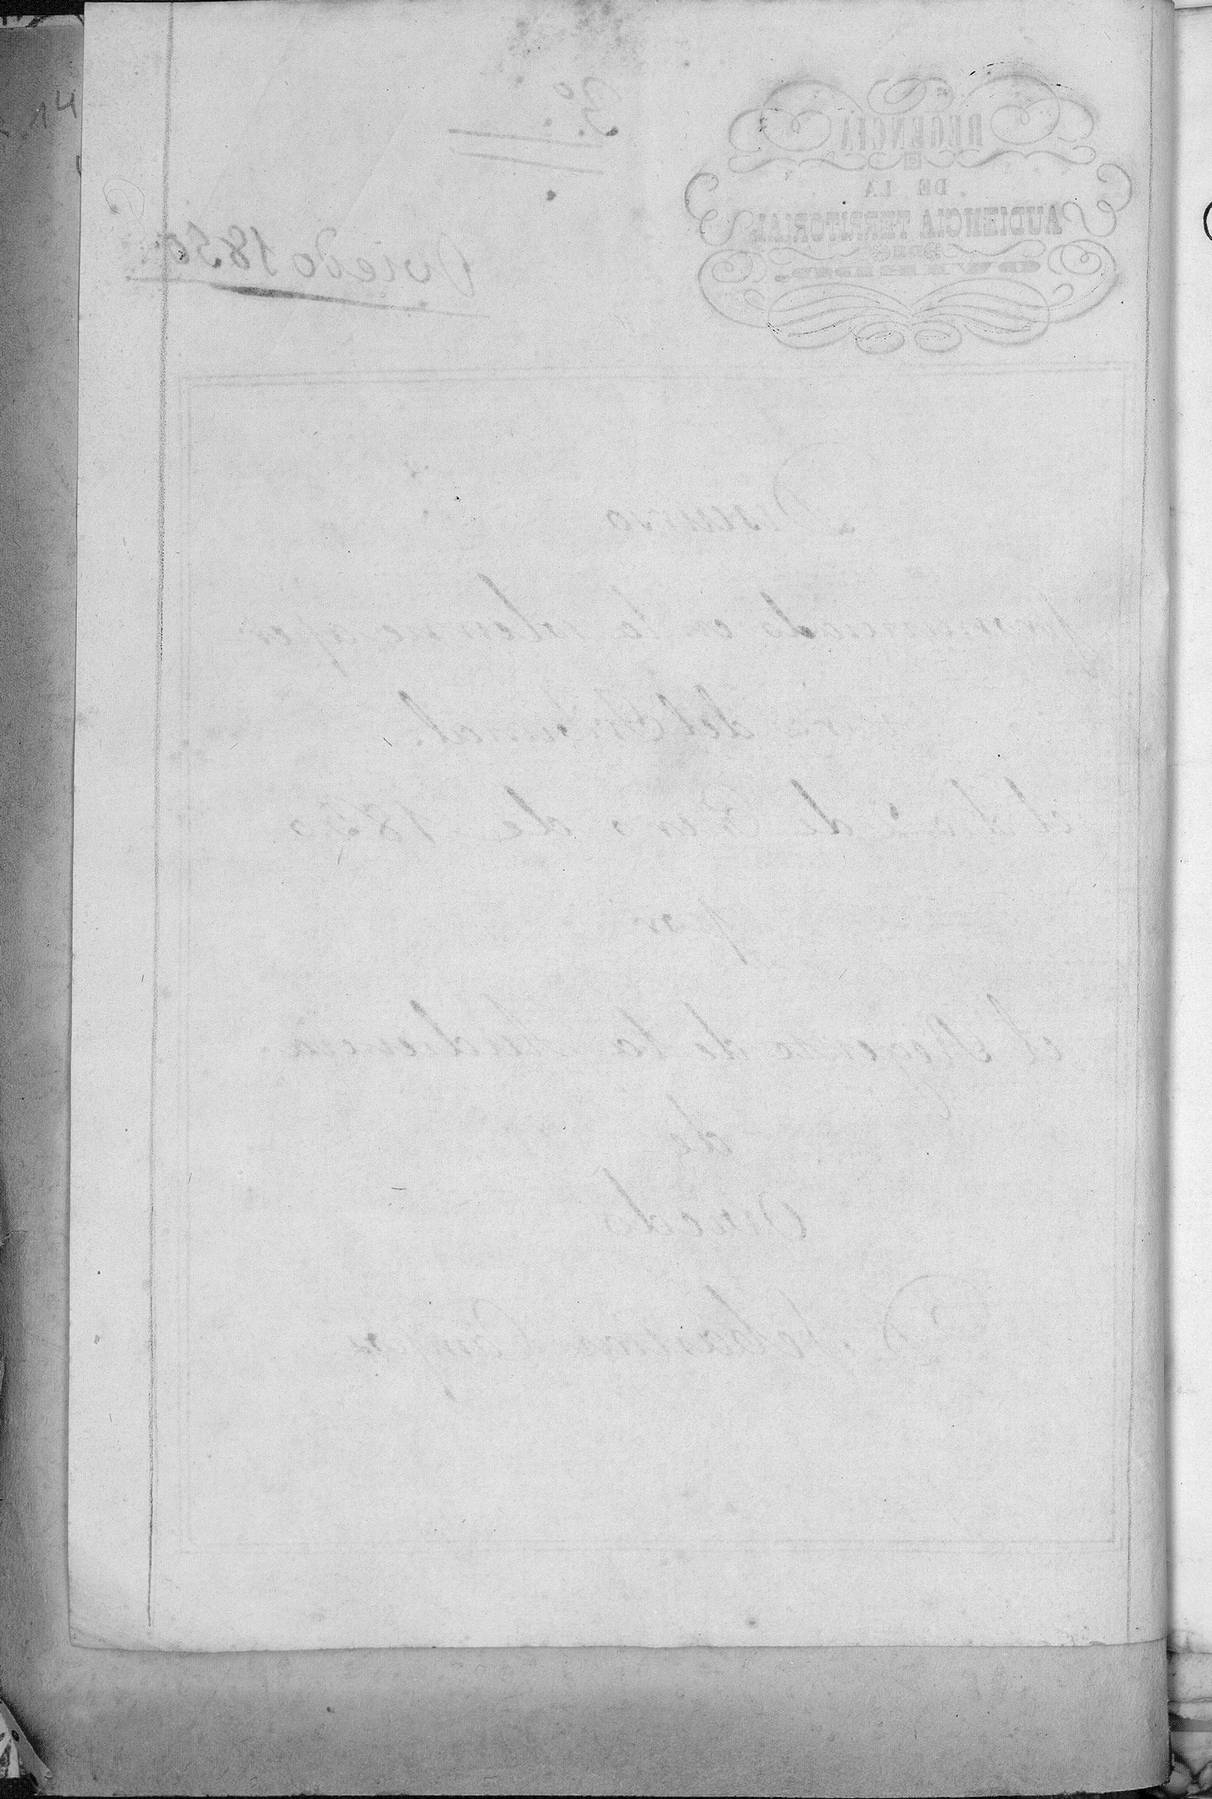 REGENCIA
DE LA
AUDIENCIA TERRITORIAL
DE
OVIEDO.
3.º
Oviedo 1850
Discurso
pronunciado en la solemne aper
tura del Tribunal.
el dia 2 de Enero de 1850
por
el Regente de la Audiencia
de
Oviedo
D.
14